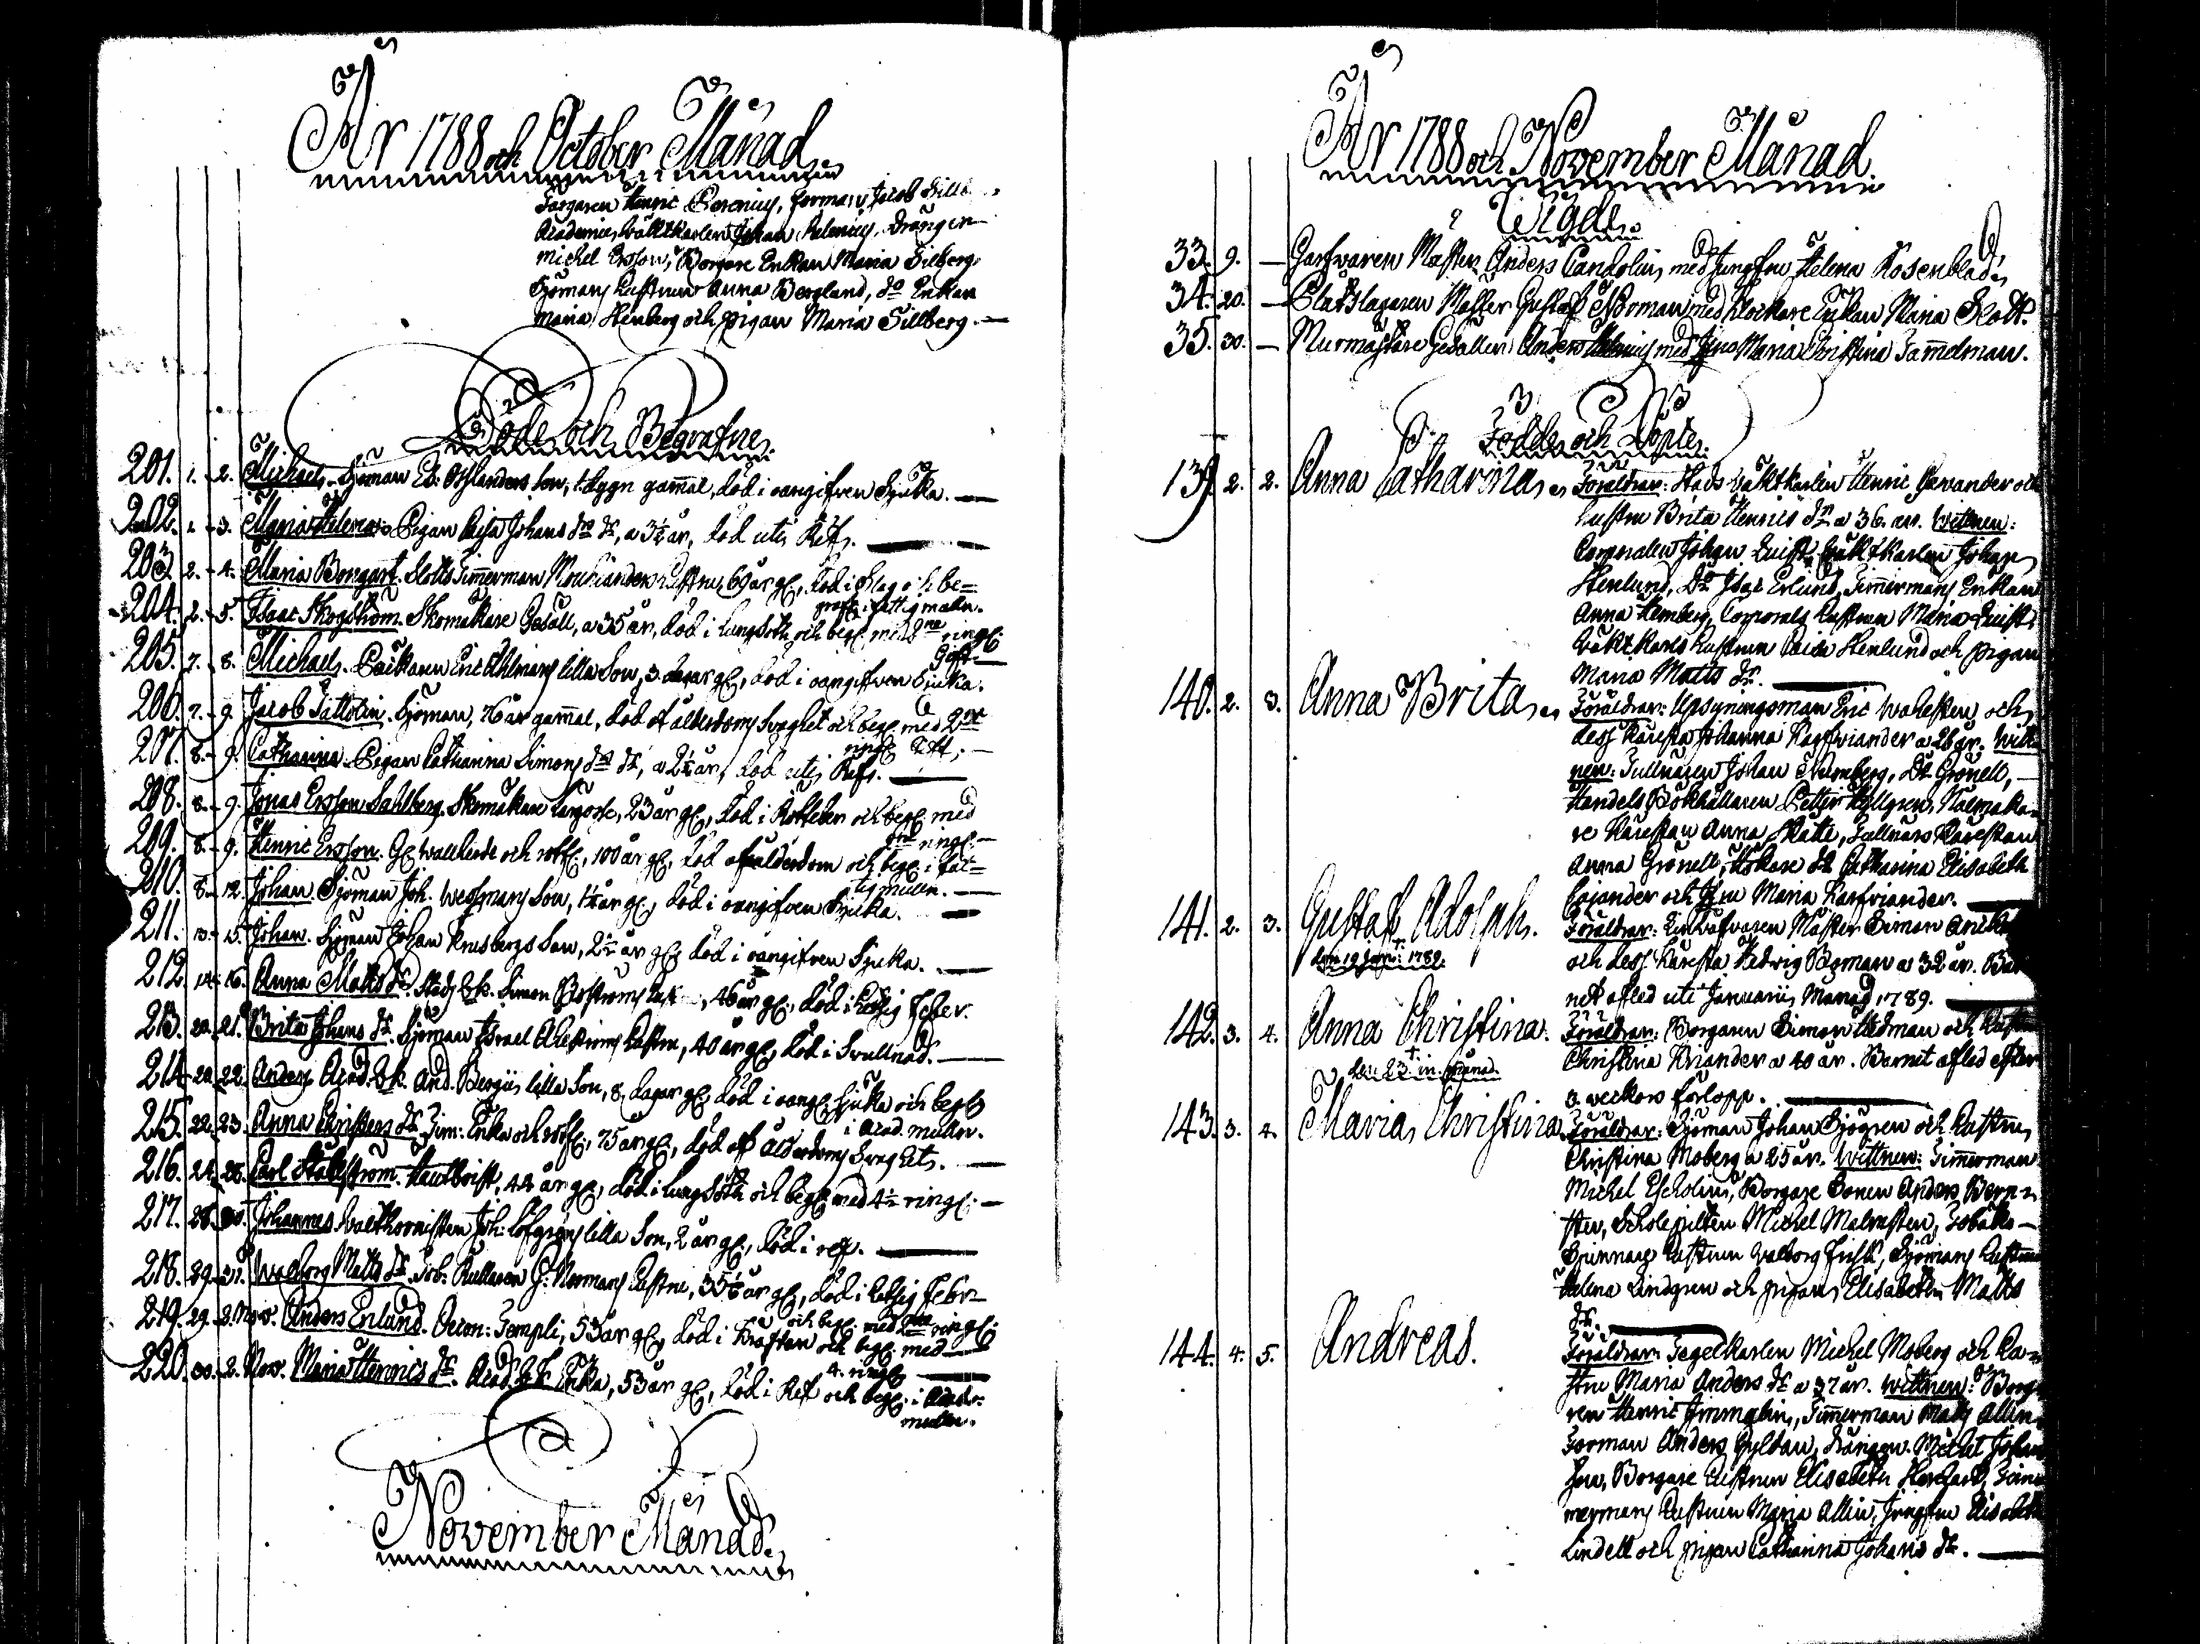 År 1788 och October Månad.
Borgaren Henric Berenius, forman Jacob Sillb
Academiæ väktkarlen Johan Helenius, drängen
Michel Ersson, Borgare Enkan Maria Silberg,
Sjömans hustrun Anna Berglund, do Enkan
Maria Stenberg och pigan Maria Sillberg.
Döde och Begrafne.
201. 1. 2. Michael, Sjöman Er. Österlanders Son, 1. dygn gammal, död i oangifven Sjuka.
202. 1. 3. Maria Helena, Pigan Caisa Johans dr dr, a 3½ år, död uti Rif.
203. 2. 4. Maria Bongart. Slotts Timmerman hustru, 60 år gl, död i Slag och be=
grafs i fattigmullen.
204. 2. 5. Isaac Skogström. Skomakare Gesäll, a 35 år, död i lungsot och begr. med 2ne ringl:
205. 7. 8. Michael. Båtkarlen Eric Ahlmans lilla Son, 3 dagar gl, död i oangifven Sjuka.
206. 7. 9. Jacob Tattolin. Sjöman, 76 år gammal, död af ålderdoms svaghet och begr. med 2ne
ringl
207. 8. 9. Catharina. Pigan Catharina Simons dr dr, a 2½ år, död uti Rif.
208. 8. 9. Jonas Ersson Sahlberg. Skomakare Lärgosse, 23 år gl, död i Rötfeber och begr. med
ringl.
209. 8. 9. Henric Ersson. Gl Wallherde och rotfl, 100 år gl, död af ålderdom och begr. i fat=
tigmullen.
210. 8. 12. Johan. Sjöman Joh. Wessmans Son, 1½ år gl, död i oangifven Sjuka.
211. 13. 15. Johan. Sjöman Johan Krusbergs Son, 2½ år gl, död i oangifven Sjuka.
212. 14. 16. Anna Matts dr. Stads Vk. Simon Boströms hust, 46 år gl, död i hetsig feber.
213. 20. 21. Brita Johans dr. Sjöman Israel Ahlströms hustru, 40 år gl, död i Svullnad.
214. 20. 22. Anders Acad. Vk. And. Bergii lilla Son, 8 dagar gl, död i oangl Sjuka och begr
i Acad. mullen.
215. 22. 23. Anna Christers dr Tim: Enka och rotfl, 75 år gl, död af ålderdoms svaghet.
216. 24. 26. Carl Stålström. Hautboist, 44 år gl, död i lungsot och begr med 4 ringl.
217. 28. 30. Johannes Valthornisten Joh: Löfgrens lilla Son, 2 år gl, död i rif.
218. 29. 31. Walborg Matts dr Tob: Rullaren G: Normans hustru, 35 år gl, död i hetsig feb
och begr. med 2ne ringl:
219. 29. 2. Nov. Anders Enlund. Oecon: Templi, 55 år gl, död i Kräftan och begr. med
4. ringl
220. 30. 2. Nov. Maria Henrics dr. Acad. V.k. Enka, 53 år gl, död i Rif och begr. i Acad:
mullen.
November Månad.
År 1788 och November Månad.
Wigde.
33. 9. Garfvaren Mäster Anders Candolin, med Jungfru Helena Rosenblad.
34. 20. Platslagaren Mäster Gustaf Norman med Klockare Enkan Maria Slott.
35. 30. Murmästare Gesällen Anders med Jfru Maria Christina Tammelman.
Födde och Döpte.
139. 2. 2. Anna Catharina. Föräldrar: Stads väktkarlen Henric Gevander och
hustru Brita Henrics dr a 36. år. Wittnen:
Corporalen Johan Quist, Väktkarlen Johan
Stenlund, Do Isac Erlund, Timmermans Enkan
Anna Stenberg, Corporals hustrun Maria Quist,
Väktkarls hustrun Caisa Stenlund och pigan
Maria Matts dr.
140. 2. 3. Anna Brita. Föräldrar: Upsyningsman Eric Wahlsten och
dess Käresta Johanna Karfviander a 26 år. Witt=
nen: Tullnären Johan Nurnberg, Do Grönell,
Handels Bokhållaren Petter Kyllgren, Målmaka=
re Kärestan Anna Skatte, Tullnärs Kärestan
Anna Grönell, Hökare dr Catharina Elisabeth
Cajander och Jfru Maria Karfviander.
141. 2. 3. Gustaf Adolph. Föräldrar: Linväfvaren Mäster Simon
den 19 Janu: 1789. och dess Käresta Hedvig Boman a 32 år. Bar
net afled uti Januarii Månad 1789.
142. 3. 4. Anna Christina. Föräldrar: Borgaren Simon Hedman och hustru
den 23. in. Månad. Christina Kriander a 40 år. Barnet afled efter
3. veckors förlopp.
143. 3. 4. Maria Christina. Föräldrar: Sjöman Johan Sjögren och hustru
Christina Moberg a 25 år. Wittnen: Timmerman
Michel Escholin, Borgare Sonen Anders Bern=
sten, Scholepilten Michel Malmsten, Tobaks
Spinnare hustrun Walborg Frisk, Sjömans hustrun
Helena Lindgren och pigan Elisabeth Matts
dr.
144. 4. 5. Andreas. Föräldrar: Tegelkarlen Michel Moberg och hu=
stru Maria Anders dr a 37 år. Wittnen: Borga
ren Henric Immolin, Timmerman Matts Allin,
Forman Anders Gyldan, drängen Michel Johan
son, Borgare hustrun Elisabeth Tim
mermans hustrun Maria Allin, Jungfru Elisabeth
Lindell och pigan Catharina Johans dr.